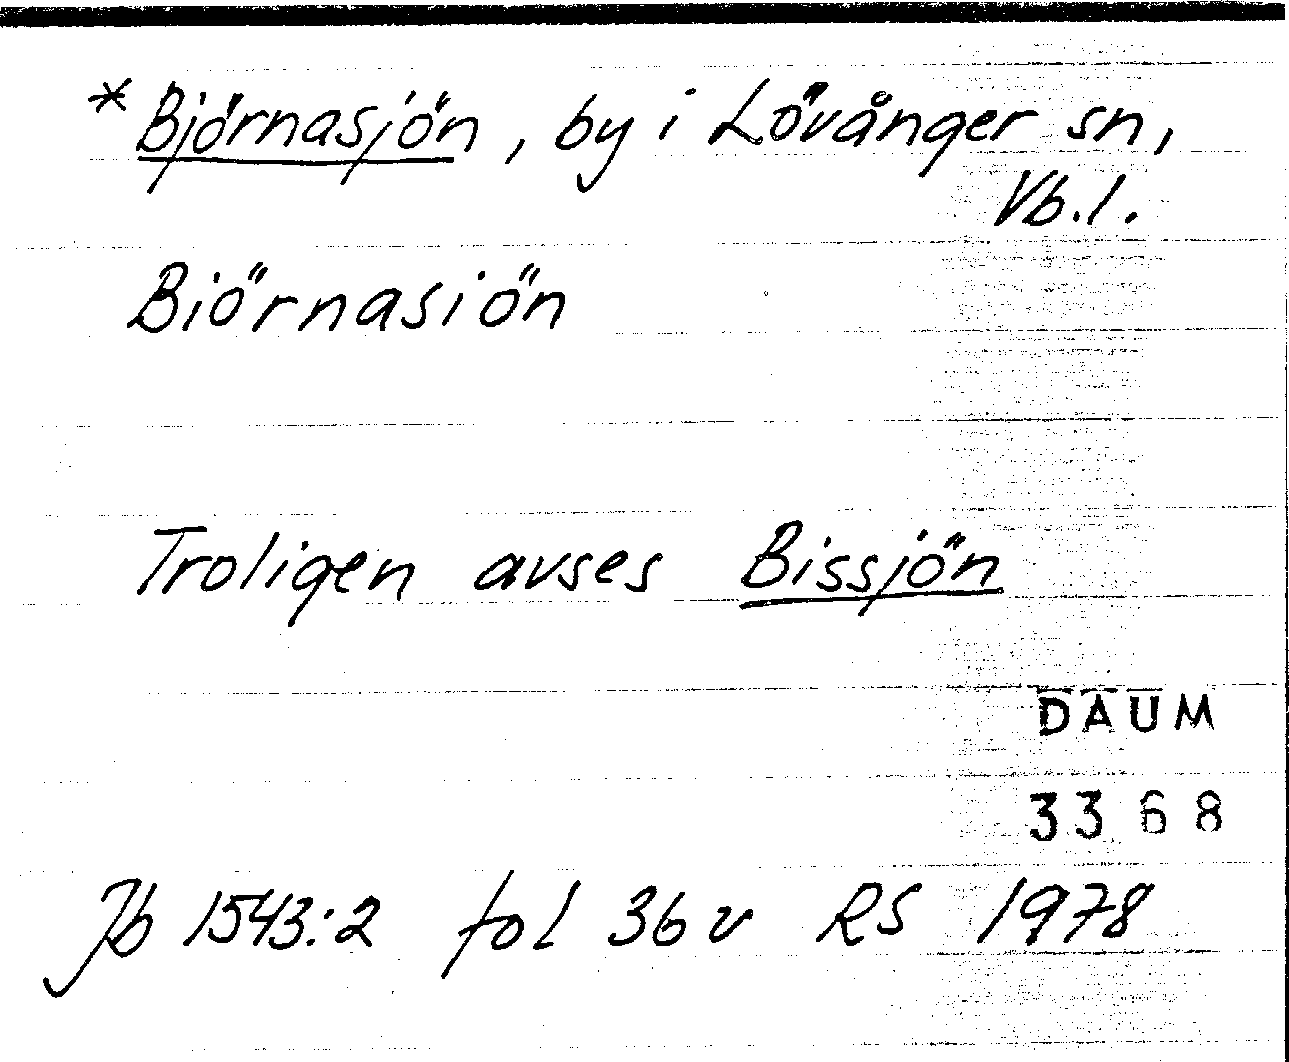 * Björnasjön, by i Lövånger sn,
Vb.l.
Biörnasiön
Troligen avses Bissjön
DAUM
3368
Jb 1543:2 fol 36 v RS 1978